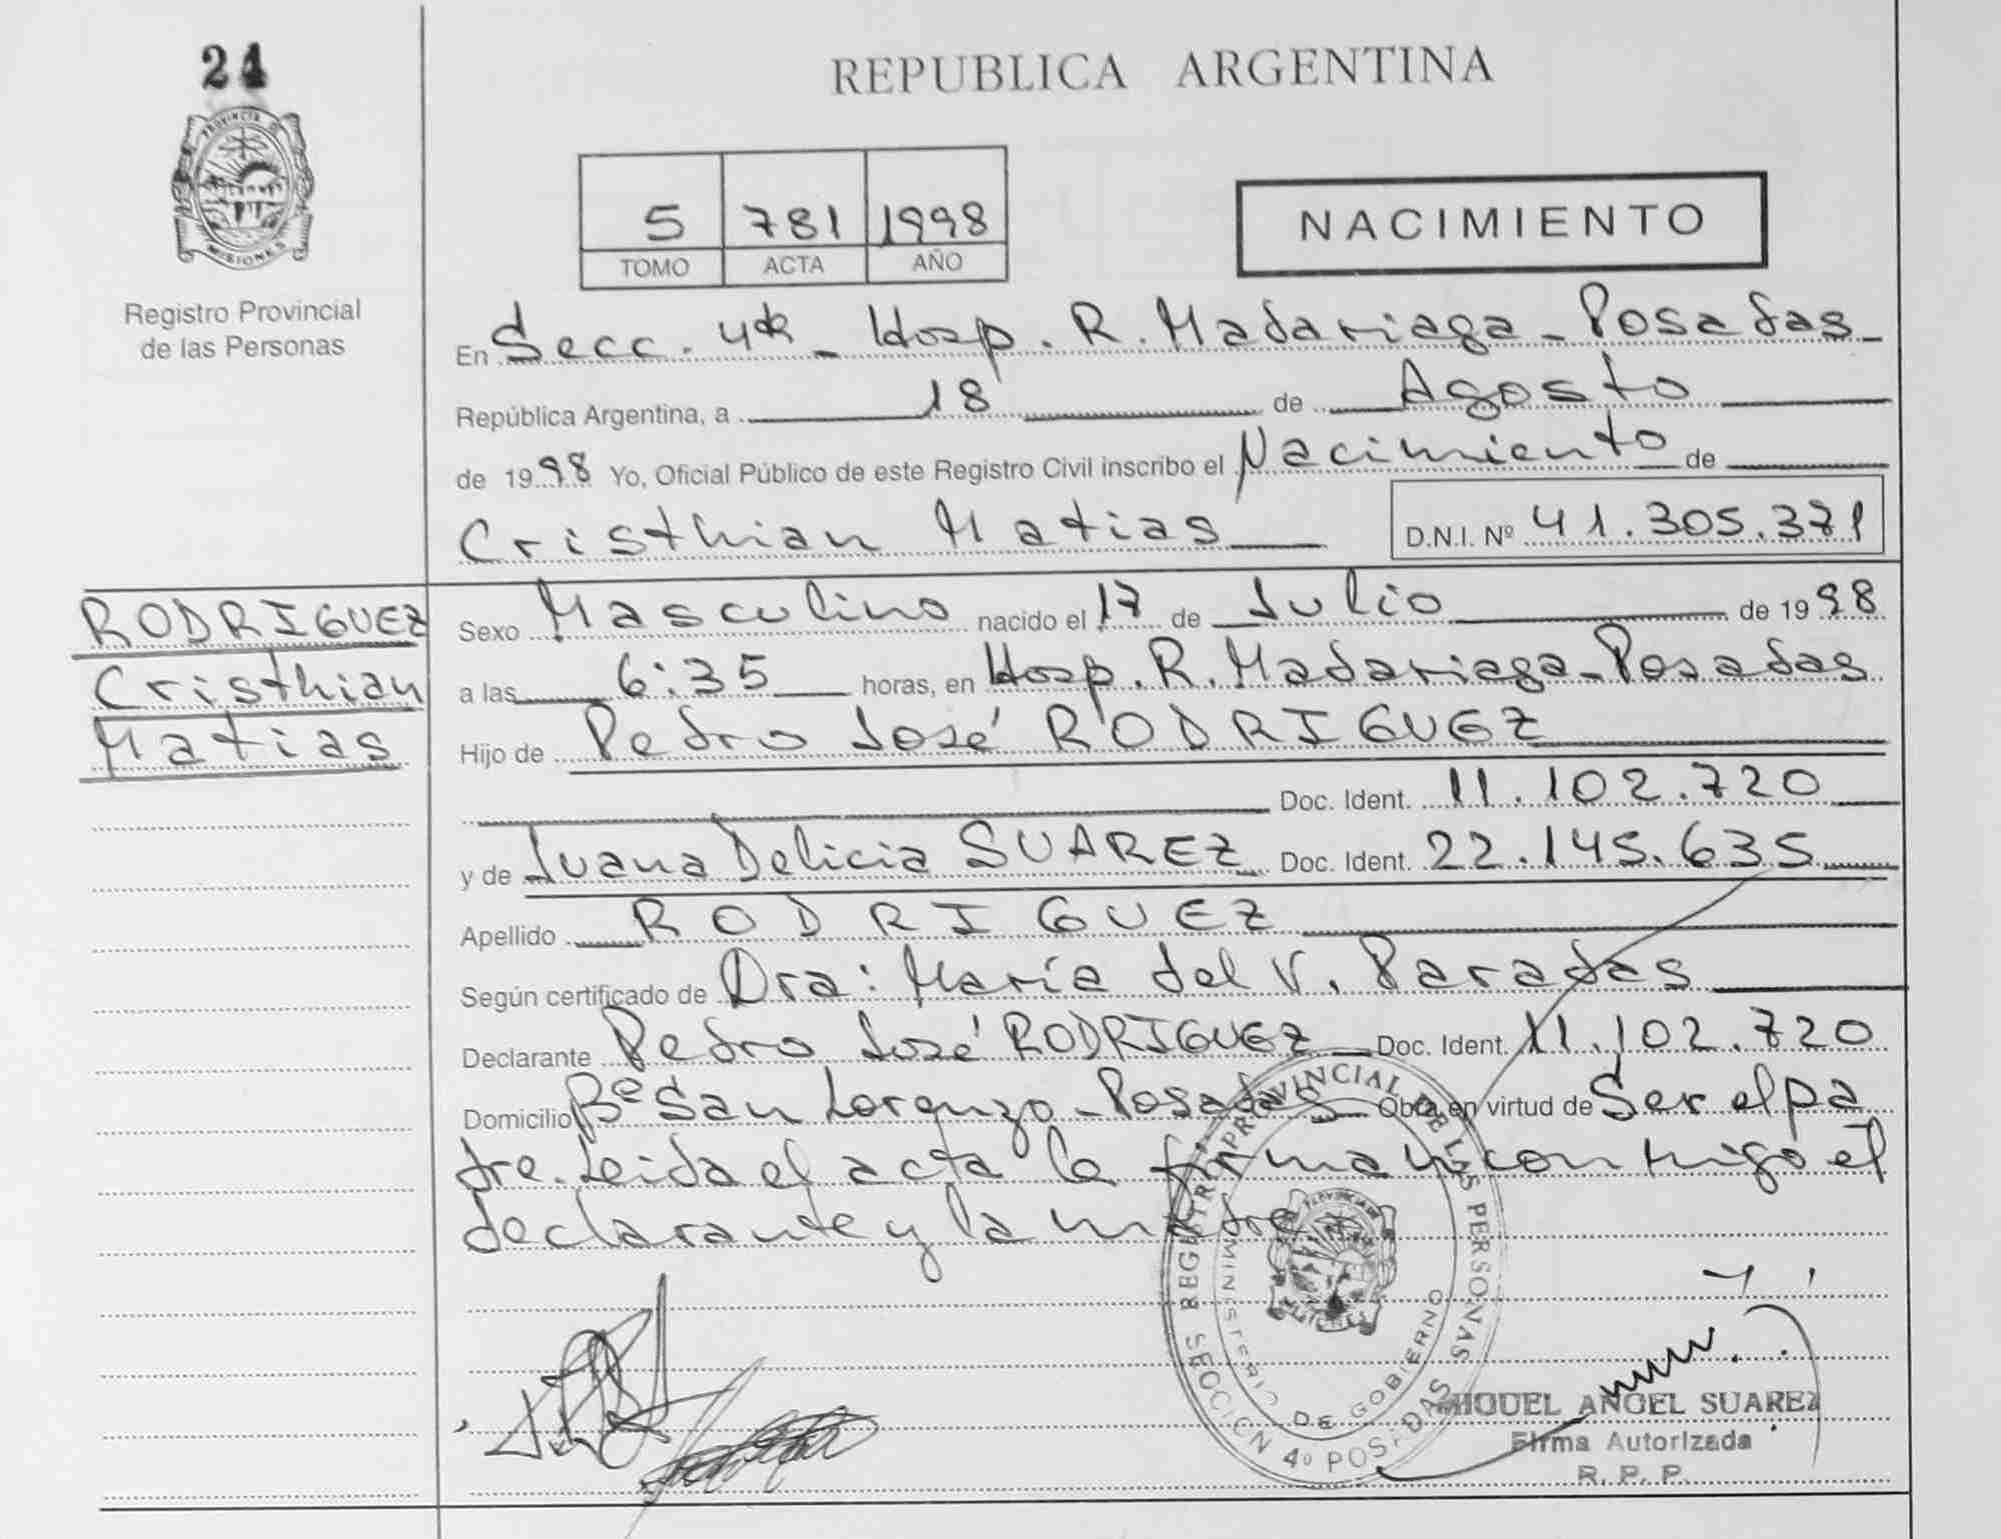 24
PROVINCIA DE
MISIONES
Registro Provincial
de las Personas
REPUBLICA ARGENTINA
5 781 1998
TOMO ACTA AÑO
NACIMIENTO
En Secc. 4ta - Hosp. R. Madariaga - Posadas -
República Argentina, a 18 de Agosto
de 1998 Yo, Oficial Público de este Registro Civil inscribo el Nacimiento de
Cristhian Matias D.N.I. Nº 41.305.371
RODRIGUEZ
Cristhian
Matias
Sexo Masculino nacido el 17 de Julio de 1998
a las 6:35 horas, en Hosp. R. Madariaga - Posadas
Hijo de Pedro José RODRIGUEZ
Doc. Ident. 11.102.720
y de Juana Delicia SUAREZ Doc. Ident. 22.145.635
Apellido RODRIGUEZ
Según certificado de Dra: María del V. Paradas
Declarante Pedro José RODRIGUEZ Doc. Ident. 11.102.720
Domicilio Bº San Lorenzo - Posadas Obra en virtud de Ser el pa
dre. Leida el acta la firman conmigo el
declarante y la madre
REGISTRO PROVINCIAL DE LAS PERSONAS
MINISTERIO DE GOBIERNO
SECCION 4º POSADAS
MIGUEL ANGEL SUAREZ
Firma Autorizada
R. P. P.